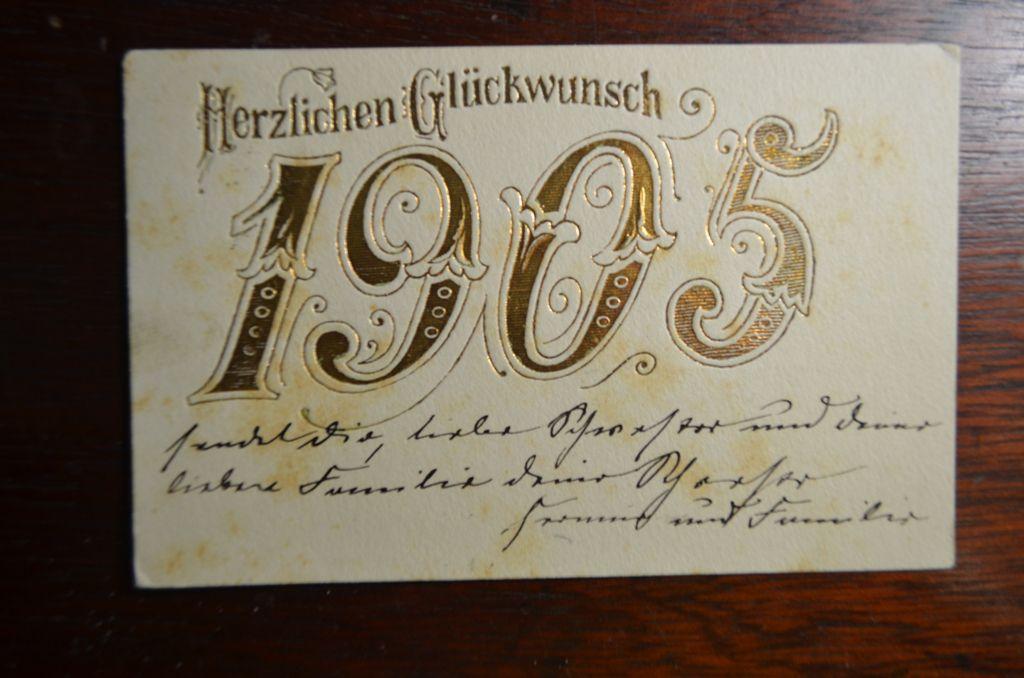 Herzlichen Glückwunsch
1905
sendet dir, liebe Schwester und deiner
lieben Familie deine Schwester
und Familie